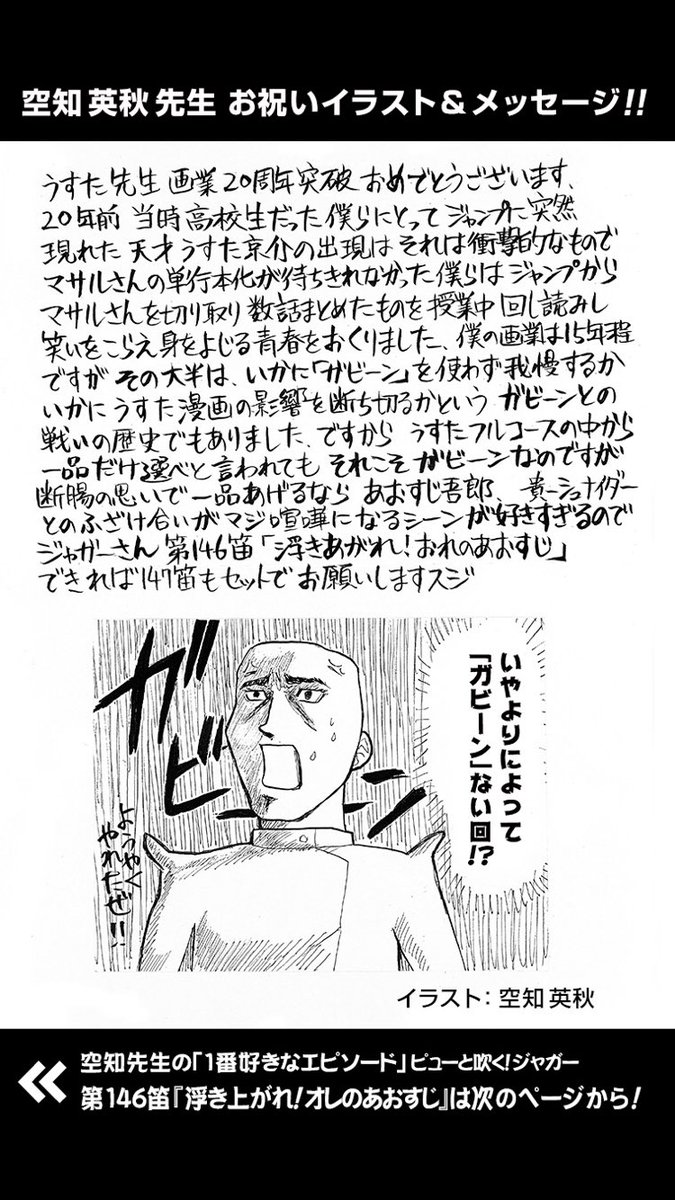 空知 英秋 先生 お祝いイラスト&メッセージ!!
うすた先生 画業20周年突破 おめでとうございます、
20年前 当時高校生だった僕らにとって ジャンプに突然
現れた 天才うすた京介の出現は それは衝撃的なもので
マサルさんの単行本化が待ちきれなかった僕らは ジャンプから
マサルさんを切り取り 数話まとめたものを 授業中 回し読みし
笑いをこらえ身をよじる青春をおくりました、僕の画業は15年程
ですが その大半は、いかに「ガビーン」を使わず我慢するか
いかに うすた漫画の影響を断ち切るかという ガビーンとの
戦いの歴史でもありました、ですから うすたフルコースの中から
一品だけ選べと言われても それこそ ガビーンなのですが
断腸の思いで一品あげるなら あおすじ吾郎、貴一シュナイダー
とのふざけ合いがマジ喧嘩になるシーンが好きすぎるので
ジャガーさん 第146笛「浮きあがれ!おれのあおすじ」
できれば147笛もセットで お願いしますスジ
いやよりによって
「ガビーン」ない回!?
ガビーン
ようやく
やれたぜ!!
イラスト: 空知 英秋
空知先生の「1番好きなエピソード」ピューと吹く!ジャガー
第146笛『浮き上がれ!オレのあおすじ』は次のページから!